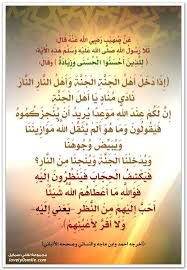 عَن صُهيب رضي الله عنه قال:
تلا رسول الله صلى الله عليه وسلم هذه الآية:
( لِلَّذِينَ أَحْسَنُوا الْحُسْنَى وَزِيَادَةٌ ) قال:
(إِذَا دَخَلَ أَهْلُ الْجَنَّةِ الْجَنَّةَ وَأَهْلُ النَّارِ النَّارَ
نَادَى مُنَادٍ يَا أَهْلَ الْجَنَّةِ
إِنَّ لَكُمْ عِنْدَ اللَّهِ مَوْعِدًا يُرِيدُ أَنْ يُنْجِزَكُمُوهُ
فَيَقُولُونَ وَمَا هُوَ أَلَمْ يُثَقِّلِ اللَّهُ مَوَازِينَنَا
وَيُبَيِّضْ وُجُوهَنَا
وَيُدْخِلْنَا الْجَنَّةَ وَيُنْجِنَا مِنَ النَّارِ؟
فَيَكْشِفُ الْحِجَابَ فَيَنْظُرُونَ إِلَيْهِ
فَوَاللَّهِ مَا أَعْطَاهُمُ اللَّهُ شَيْئًا
أَحَبَّ إِلَيْهِمْ مِنَ النَّظَرِ -يَعْنِي إِلَيْهِ-
وَلَا أَقَرَّ لِأَعْيُنِهِمْ)
(أخرجه أحمد وابن ماجه والنسائي وصححه الألباني)